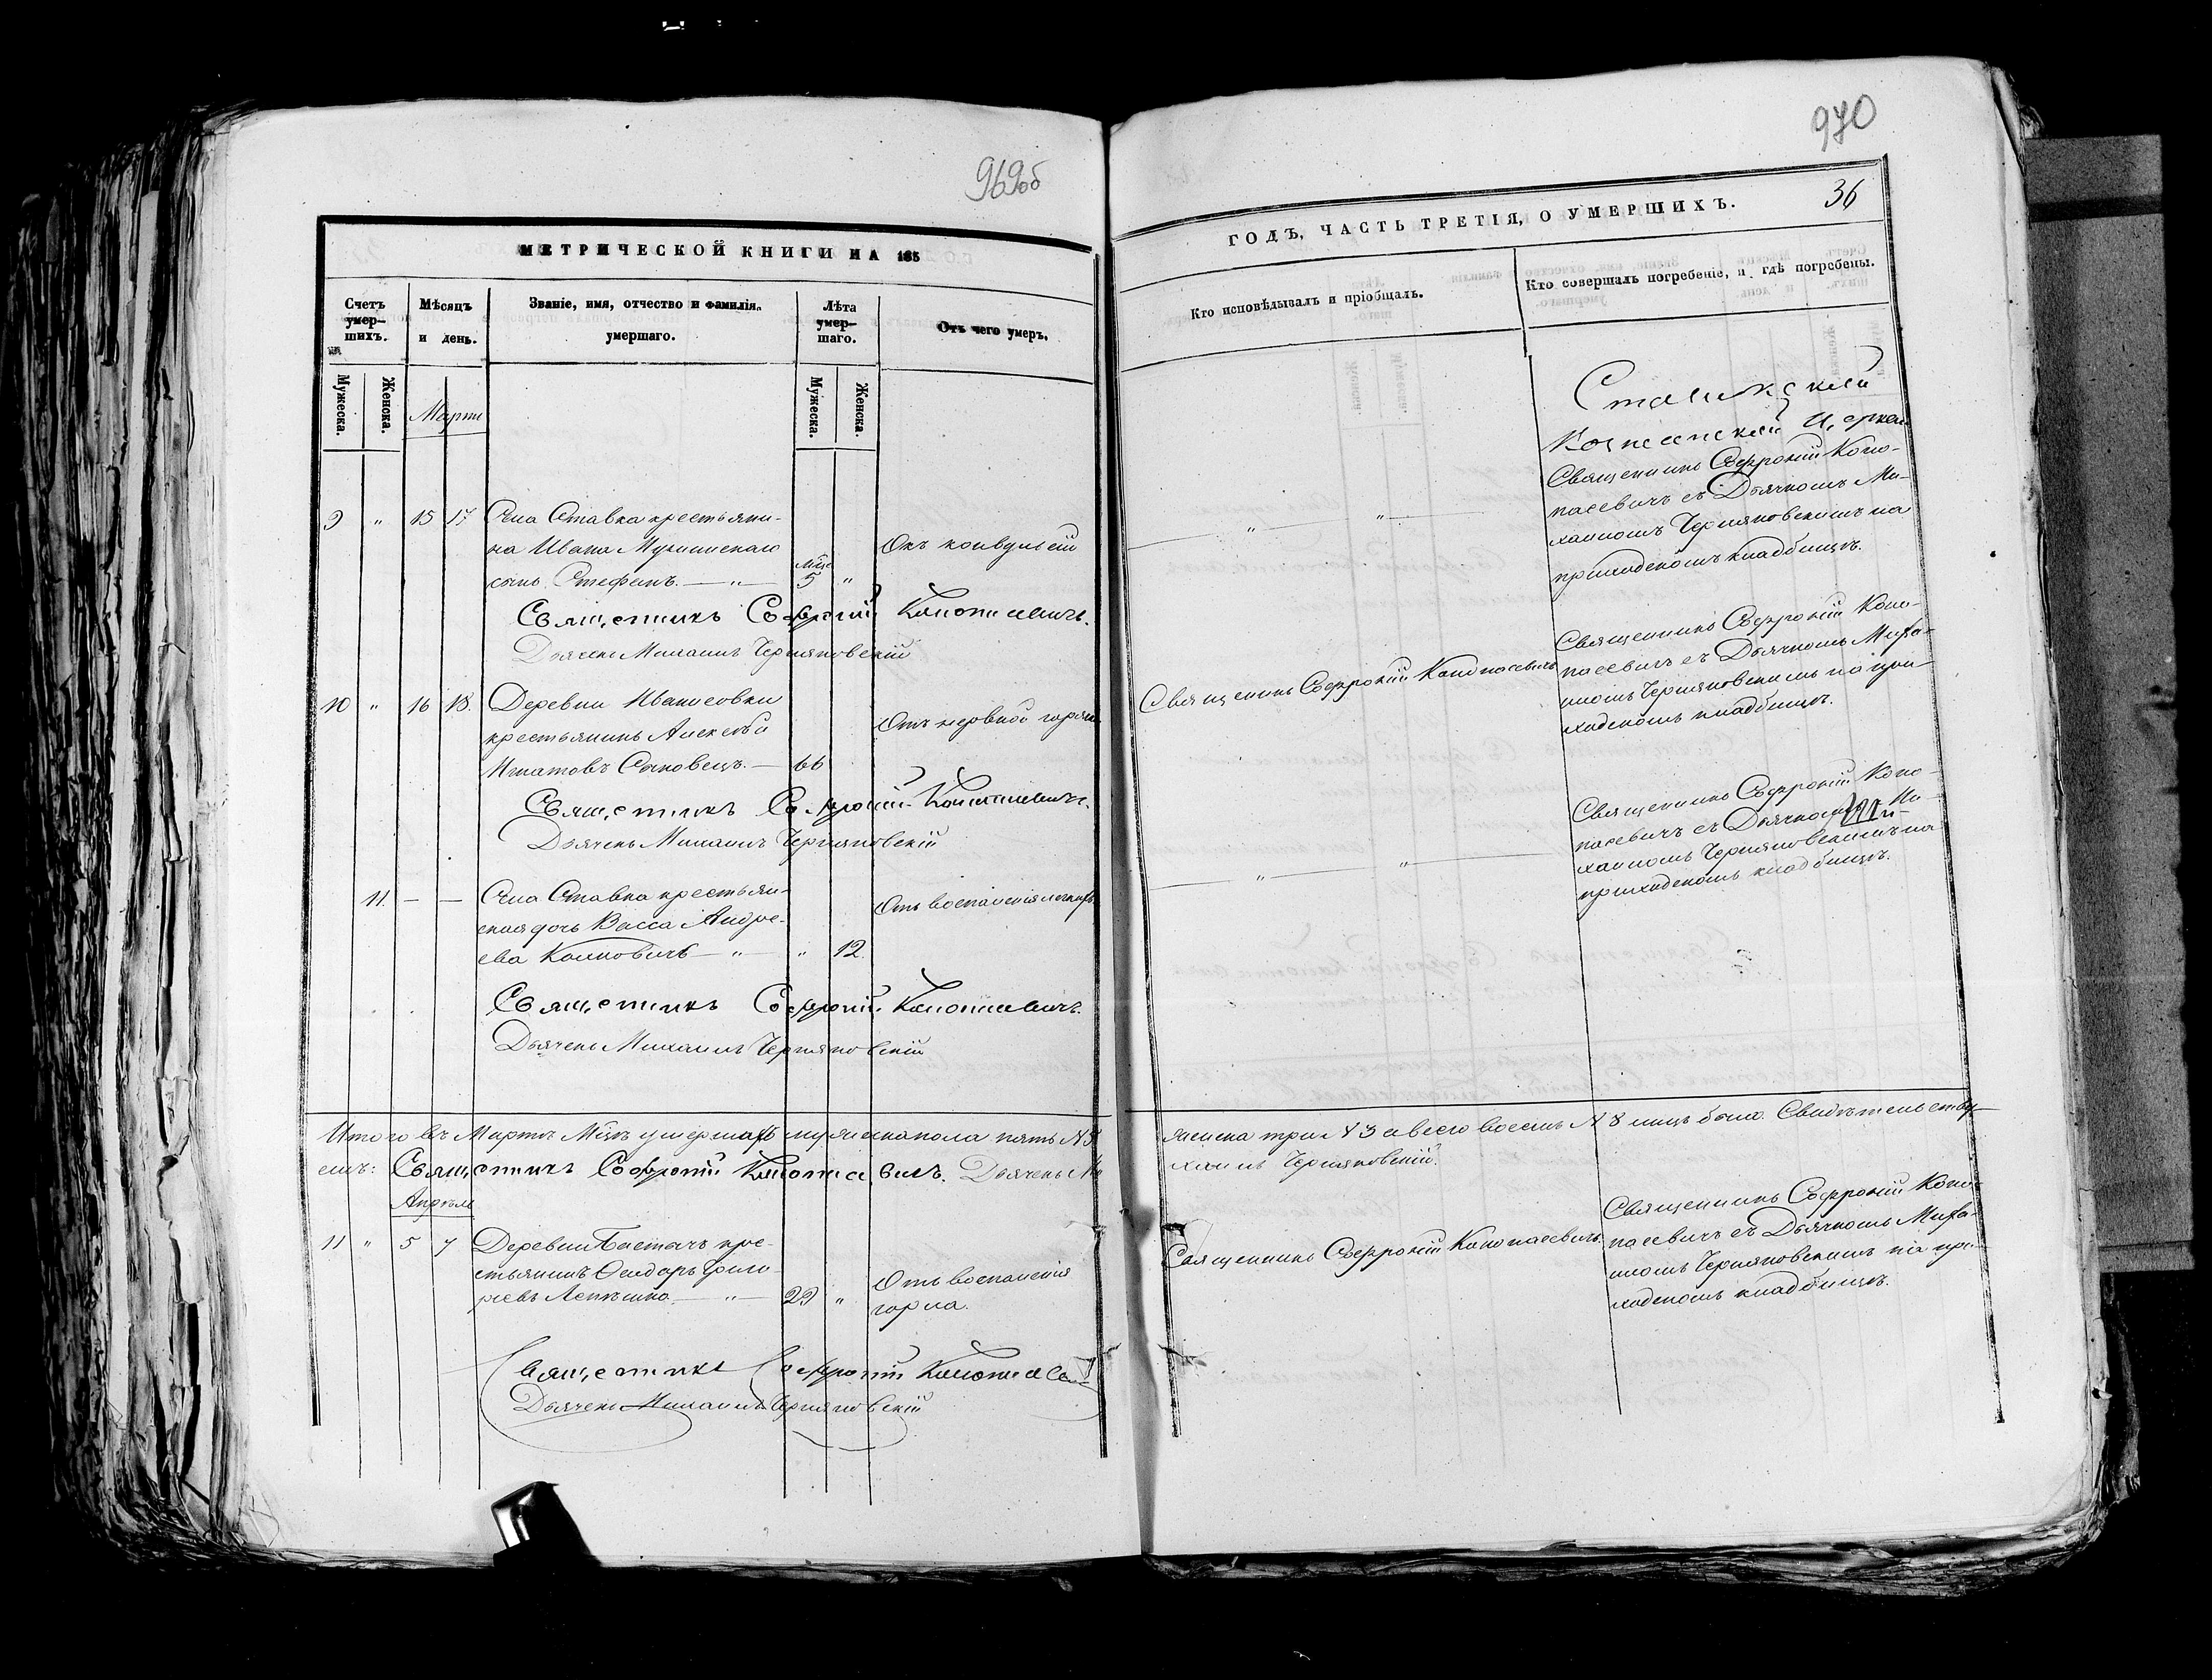 969об
МЕТРИЧЕСКОЙ КНИГИ НА 185
Счетъ умер-шихъ.
Мѣсяцъ и день.
Званіе, имя, отчество и фамилія умершаго.
Лѣта умер-шаго.
Отъ чего умеръ.
Мужеска.
Женска.
Мартъ
Мужеска.
Женска.
9 " 15 17 Села Ставка крестьяни-
на Ивана
сынъ Стефанъ. — " — 5 "
Отъ конвульсій
Священникъ Софроній Конопасевичъ.
Дьячекъ Михаилъ Черняховскій
10 " 16 18. Деревни Ивановки
крестьянинъ Алексѣй
Игнатовъ — 66
Отъ нервной горяч
Священникъ Софроній Конопасевичъ.
Дьячекъ Михаилъ Черняховскій
11. — — Села Ставка крестьян-
ская дочь Васса Андре-
ева — " — " 12.
Отъ воспаленія легкихъ
Священникъ Софроній Конопасевичъ.
Дьячекъ Михаилъ Черняховскій
Итого въ Мартѣ Мцѣ умершихъ мужеска пола пять № 5
емъ: Священникъ Софроній Конопасевичъ. Дьячекъ Ми
Апрѣль
11 " 5 7 Деревни кре-
стьянинъ Ѳеодоръ Григо-
рьевъ — " — 29 "
Отъ воспаленія
горла.
Священникъ Софроній Конопасев
Дьячекъ Михаилъ Черняховскій
970
36
ГОДЪ, ЧАСТЬ ТРЕТІЯ, О УМЕРШИХЪ.
Кто исповѣдывалъ и пріобщалъ.
Кто совершалъ погребеніе, и гдѣ погребены.
Ставской
Вознесенской Церкви
Священникъ Софроній Коно-
пасевичъ съ Дьячкомъ Ми-
хаиломъ Черняховскимъ на
приходскомъ кладбищѣ.
Священникъ Софроній Конопасевичъ
Священникъ Софроній Коно-
пасевичъ съ Дьячкомъ Миха-
иломъ Черняховскимъ на при-
ходскомъ кладбищѣ.
Священникъ Софроній Коно-
пасевичъ съ Дьячкомъ Ми-
хаиломъ Черняховскимъ на
приходскомъ кладбищѣ.
женска три № 3 а всего восемь № 8 лицъ было. Свидѣтельству-
хаилъ Черняховскій.
Священникъ Софроній Конопасевичъ.
Священникъ Софроній Коно-
пасевичъ съ Дьячкомъ Миха-
иломъ Черняховскимъ на при-
ходскомъ кладбищѣ.